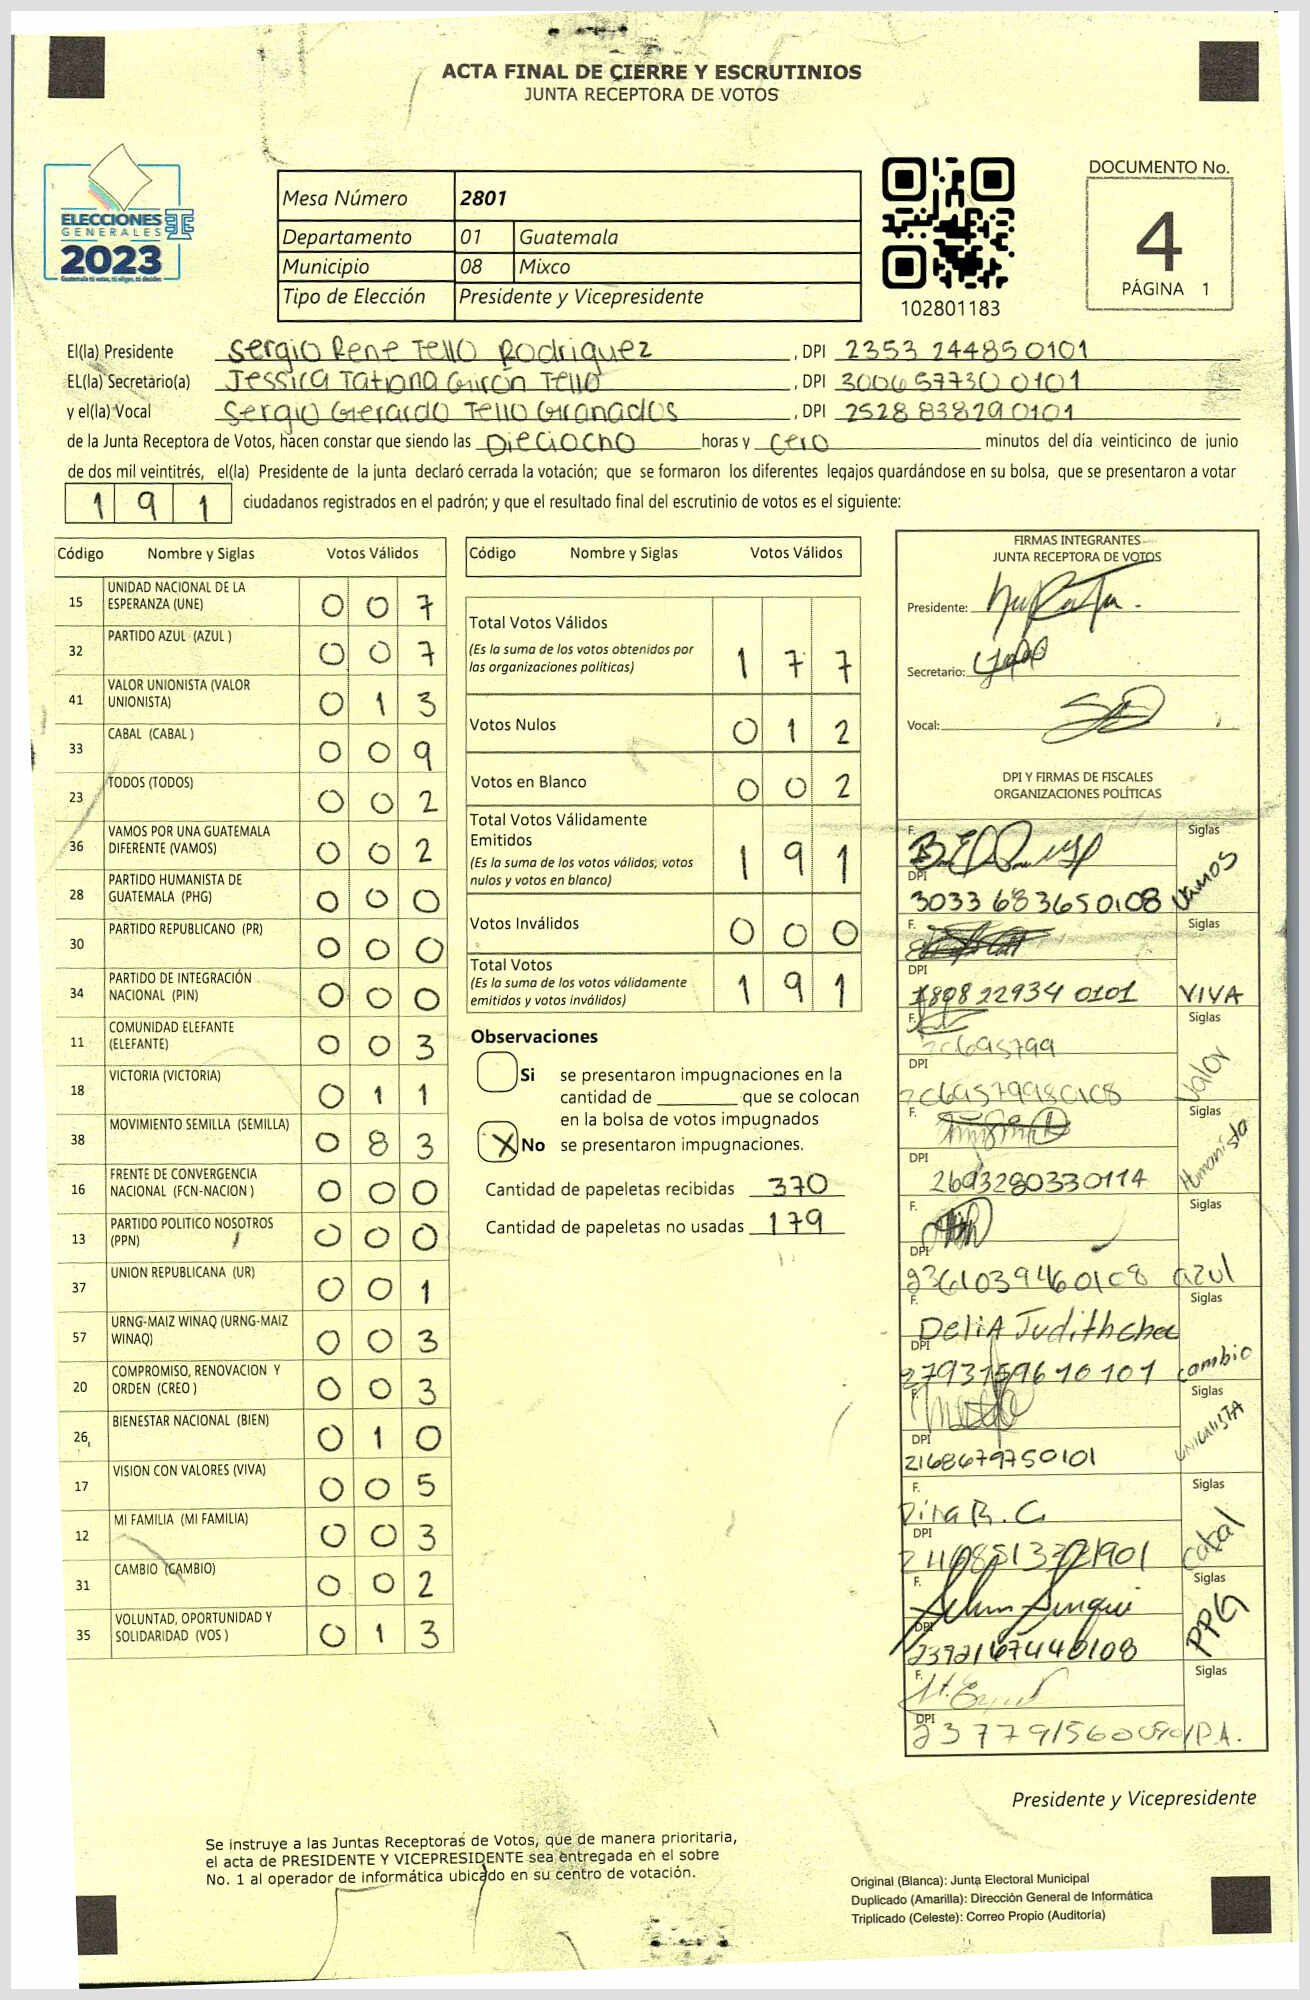 ACTA FINAL DE CIERRE Y ESCRUTINIOS
JUNTA RECEPTORA DE VOTOS
ELECCIONES
GENERALES
2023
Guatemala tú votas, tú eliges, tú decides
Mesa Número 2801
Departamento 01 Guatemala
Municipio 08 Mixco
Tipo de Elección Presidente y Vicepresidente
102801183
DOCUMENTO No.
4
PÁGINA 1
El(la) Presidente Sergio Rene Tello Rodriguez, DPI 2353 24485 0101
EL(la) Secretario(a) Jessica Tatiana Girón Tello, DPI 3006 57730 0101
y el(la) Vocal Sergio Gerardo Tello Granados, DPI 2528 83829 0101
de la Junta Receptora de Votos, hacen constar que siendo las Dieciocho horas y cero minutos del día veinticinco de junio
de dos mil veintitrés, el(la) Presidente de la junta declaró cerrada la votación; que se formaron los diferentes legajos guardándose en su bolsa, que se presentaron a votar
191 ciudadanos registrados en el padrón; y que el resultado final del escrutinio de votos es el siguiente:
Código Nombre y Siglas Votos Válidos
15 UNIDAD NACIONAL DE LA ESPERANZA (UNE) 0 0 7
32 PARTIDO AZUL (AZUL ) 0 0 7
41 VALOR UNIONISTA (VALOR UNIONISTA) 0 1 3
33 CABAL (CABAL ) 0 0 9
23 TODOS (TODOS) 0 0 2
36 VAMOS POR UNA GUATEMALA DIFERENTE (VAMOS) 0 0 2
28 PARTIDO HUMANISTA DE GUATEMALA (PHG) 0 0 0
30 PARTIDO REPUBLICANO (PR) 0 0 0
34 PARTIDO DE INTEGRACIÓN NACIONAL (PIN) 0 0 0
11 COMUNIDAD ELEFANTE (ELEFANTE) 0 0 3
18 VICTORIA (VICTORIA) 0 1 1
38 MOVIMIENTO SEMILLA (SEMILLA) 0 8 3
16 FRENTE DE CONVERGENCIA NACIONAL (FCN-NACION ) 0 0 0
13 PARTIDO POLITICO NOSOTROS (PPN) 0 0 0
37 UNION REPUBLICANA (UR) 0 0 1
57 URNG-MAIZ WINAQ (URNG-MAIZ WINAQ) 0 0 3
20 COMPROMISO, RENOVACION Y ORDEN (CREO ) 0 0 3
26 BIENESTAR NACIONAL (BIEN) 0 1 0
17 VISION CON VALORES (VIVA) 0 0 5
12 MI FAMILIA (MI FAMILIA) 0 0 3
31 CAMBIO (CAMBIO) 0 0 2
35 VOLUNTAD, OPORTUNIDAD Y SOLIDARIDAD (VOS ) 0 1 3
Código Nombre y Siglas Votos Válidos
Total Votos Válidos
(Es la suma de los votos obtenidos por
las organizaciones políticas) 1 7 7
Votos Nulos 0 1 2
Votos en Blanco 0 0 2
Total Votos Válidamente
Emitidos
(Es la suma de los votos válidos, votos
nulos y votos en blanco) 1 9 1
Votos Inválidos 0 0 0
Total Votos
(Es la suma de los votos válidamente
emitidos y votos inválidos) 1 9 1
Observaciones
Si se presentaron impugnaciones en la
cantidad de ________ que se colocan
en la bolsa de votos impugnados
X No se presentaron impugnaciones.
Cantidad de papeletas recibidas 370
Cantidad de papeletas no usadas 179
FIRMAS INTEGRANTES
JUNTA RECEPTORA DE VOTOS
Presidente:
Secretario:
Vocal:
DPI Y FIRMAS DE FISCALES
ORGANIZACIONES POLÍTICAS
F. Siglas
DPI
3033 68365 0108 Vamos
F. Siglas
DPI
1808 22934 0101 VIVA
F. Siglas
DPI
Valor
F. Siglas
DPI
2693280330114 Humanista
F. Siglas
DPI
2361039460108 azul
F. Siglas
Delia Judith
DPI
cambio
F. Siglas
DPI
2168679750101 UNIONISTA
F. Siglas
DPI
Cabal
F. Siglas
DPI
2392167440108 PPG
F. Siglas
DPI
P.A.
Presidente y Vicepresidente
Se instruye a las Juntas Receptoras de Votos, que de manera prioritaria,
el acta de PRESIDENTE Y VICEPRESIDENTE sea entregada en el sobre
No. 1 al operador de informática ubicado en su centro de votación.
Original (Blanca): Junta Electoral Municipal
Duplicado (Amarilla): Dirección General de Informática
Triplicado (Celeste): Correo Propio (Auditoría)